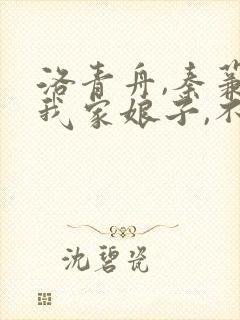 洛青舟,秦蒹
我家娘子,不
沈碧瓷